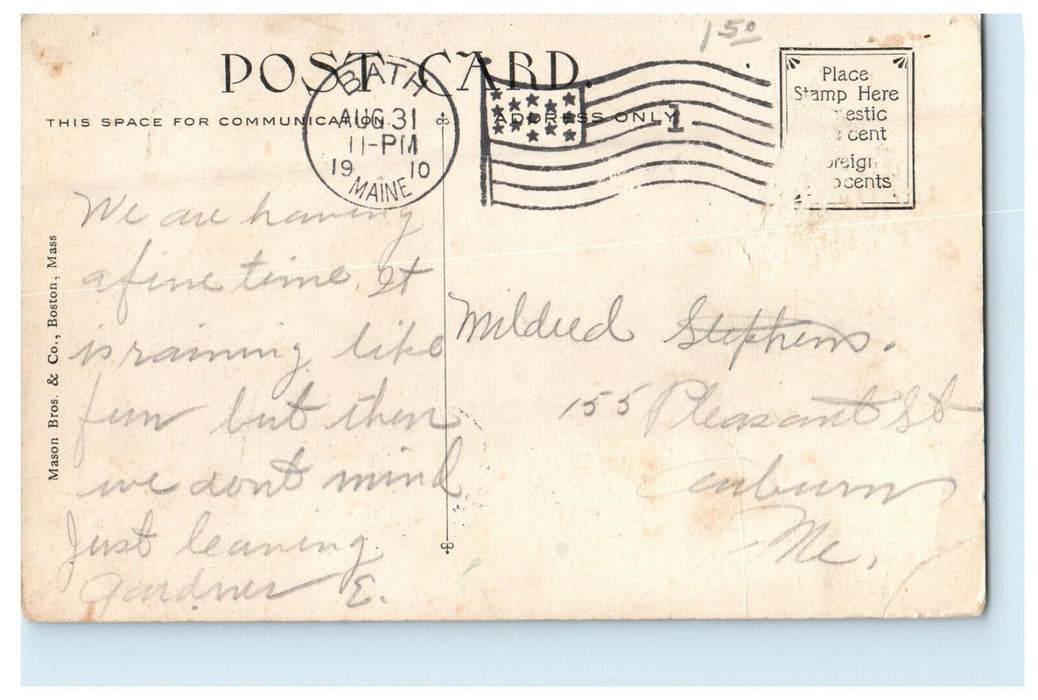 1 50
POST CARD.
THIS SPACE FOR COMMUNICATION.
ADDRESS ONLY
BATH
AUG 31
11-PM
19 10
MAINE
1
Place
Stamp Here
estic
cent
oreign
cents
Mason Bros. & Co., Boston, Mass
We are having
a fine time. It
is raining like
fun but then
we dont mind.
Just leaving
Gardner E.
Mildred Stephens.
155 Pleasant St
Auburn
Me.